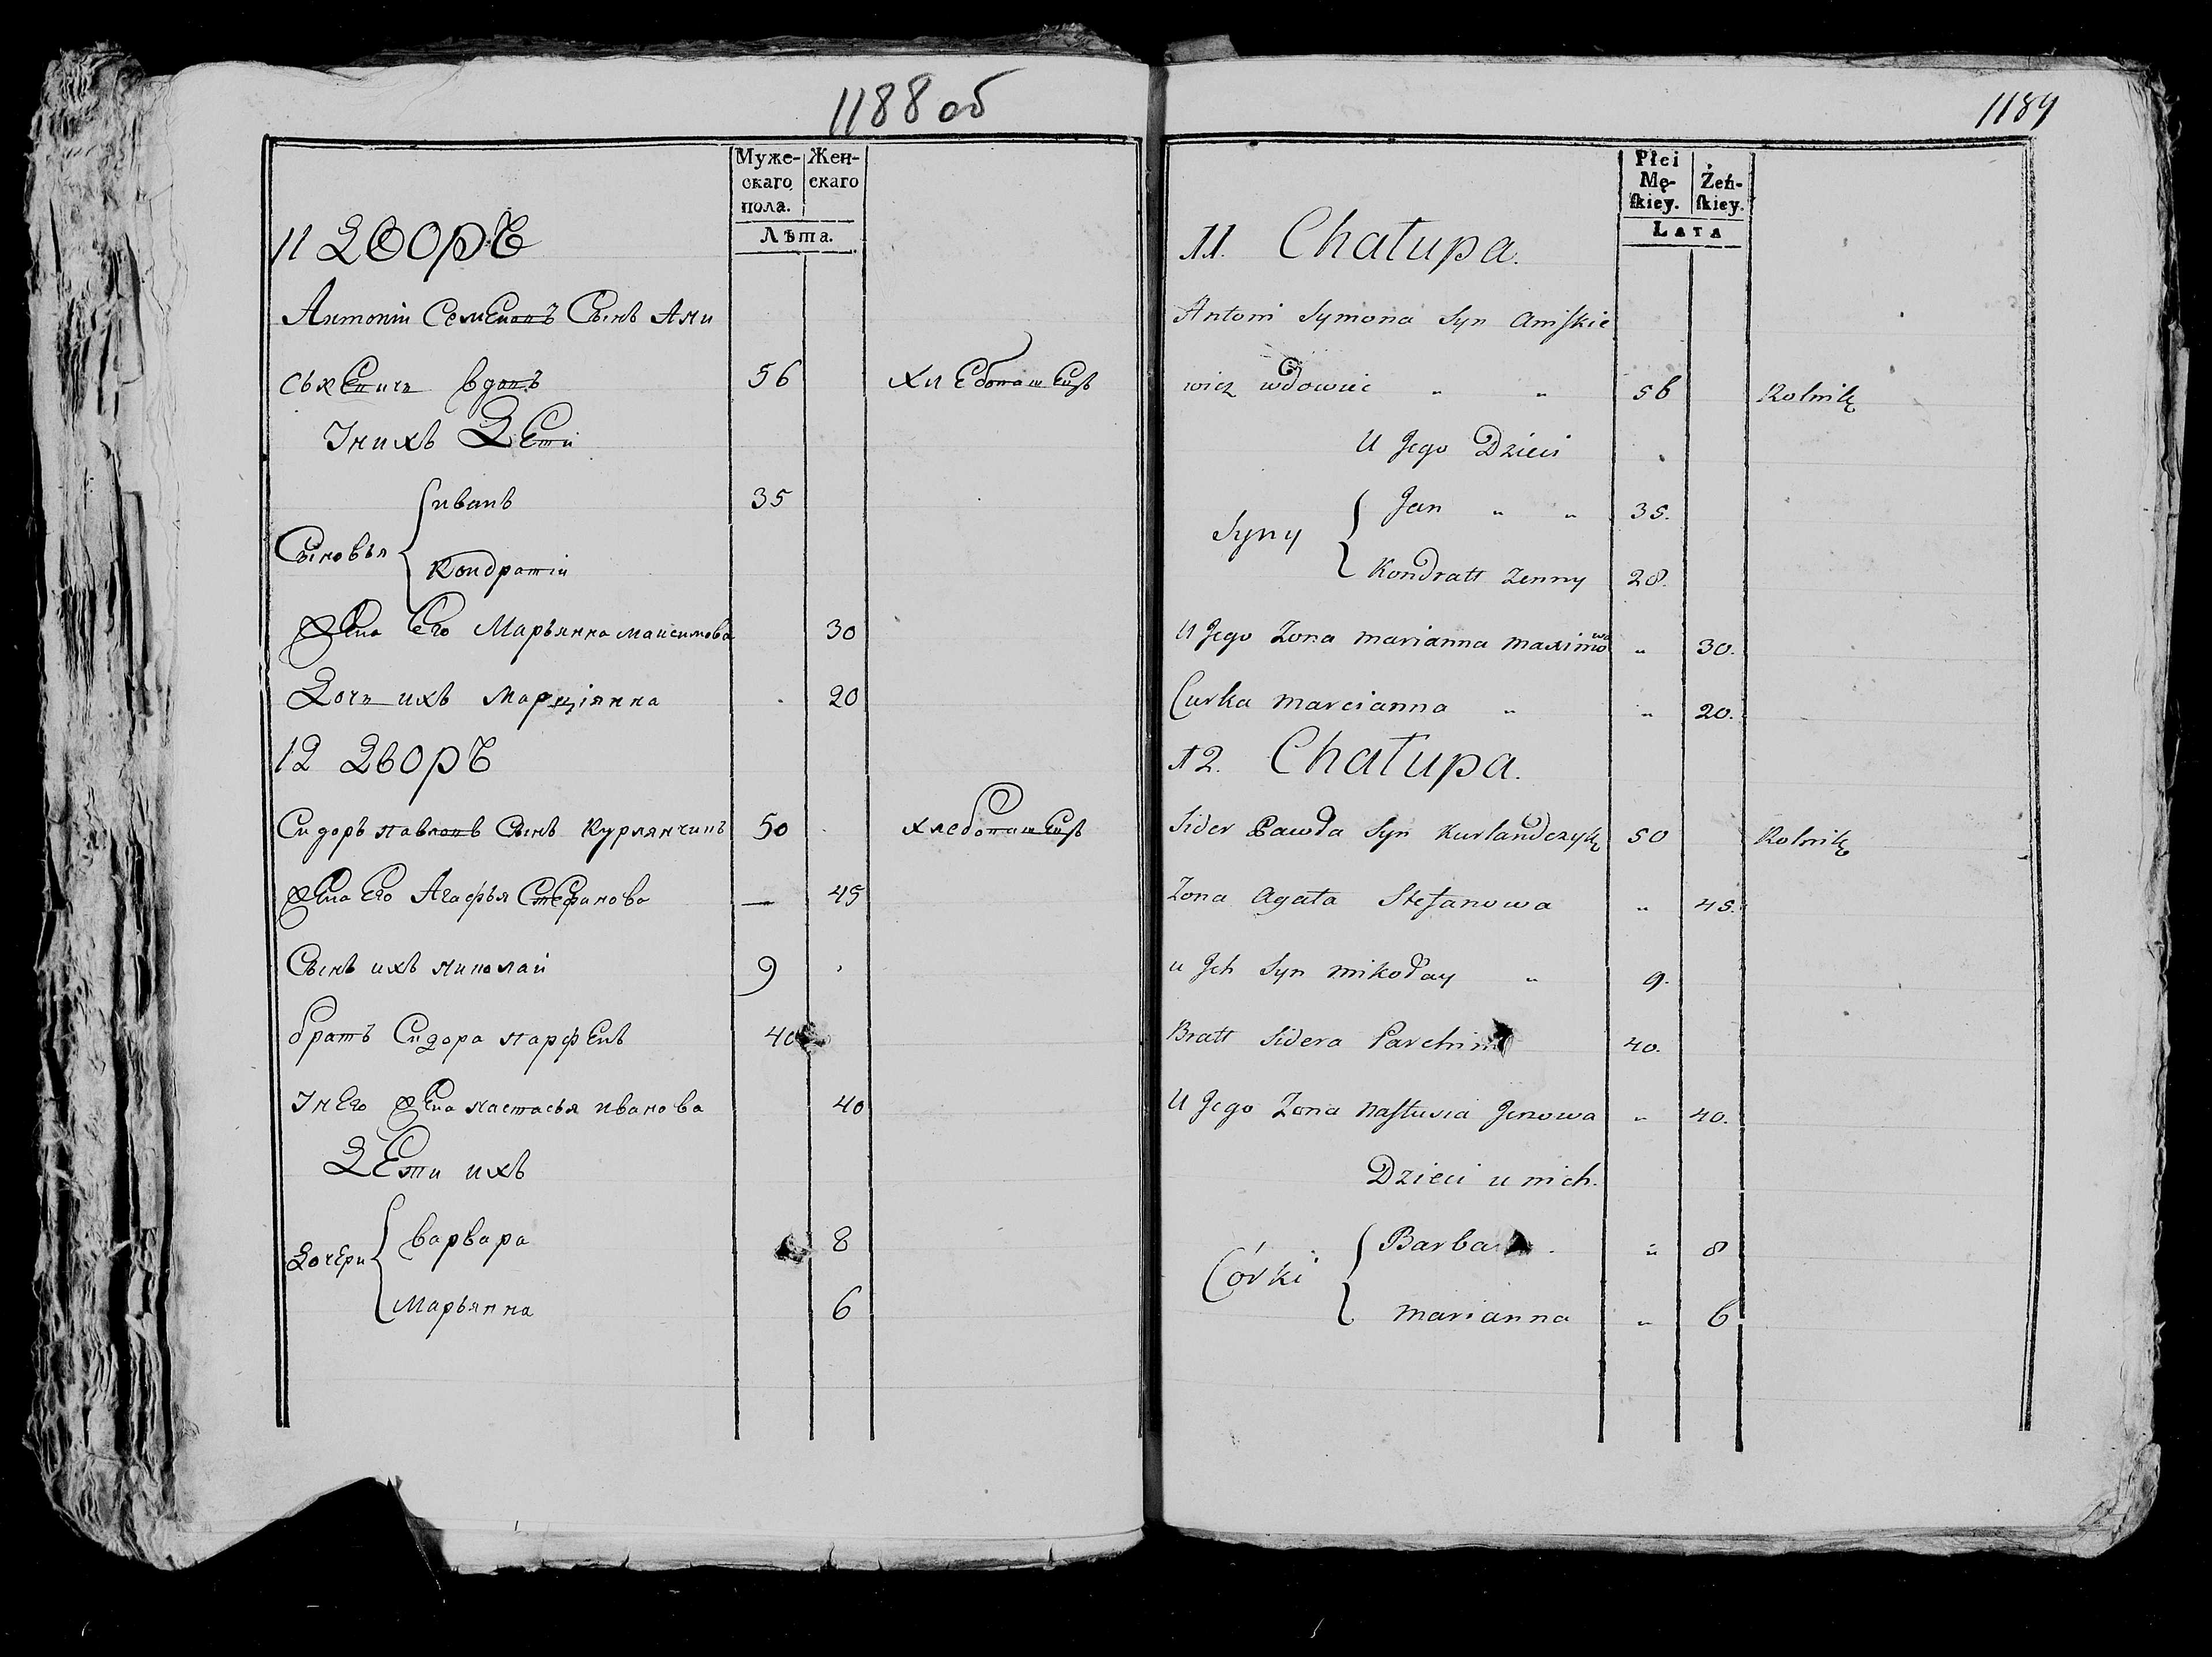 1188 об
Муже-
скаго
пола.
Жен-
скаго
Лѣта.
11 Дворъ
Антоній Семеновъ Сынъ Ани
ськевичъ вдовъ 56 хлебопашецъ
У нихъ Дети
Сыновья
иванъ 35
Кондратій
Жена Его Марьянна максимова 30
Дочь ихъ Марціянна 20
12 Дворъ
Сидоръ павловъ Сынъ Курлянчикъ 50 хлебопашецъ
Жена Его Агафья Стефанова — 45
Сынъ ихъ николай 9
братъ Сидора парфенъ 40
У него жена настасья иванова 40
Дети ихъ
Дочери
варвара 8
Марьянна 6
1189
Płci
Mę-
ſkiey.
Żeń-
ſkiey.
Lата
11. Chałupa.
Antoni Symona Syn Aniſkie
wicz wdowiec " " 56 Rolnik
U Jego Dzieci
Syny
Jan " " 35.
Kondratt żenny 28.
U Jego Zona marianna maximowa " 30.
Curka marcianna " " 20.
12. Chałupa.
Sider Pawła Syn Kurlandczyk 50 Rolnik
Zona Agata Stefanowa " 45.
u Jch Syn mikołay " 9.
Bratt Sidera Parchim 40.
U Jego Zona Naſtusia Janowa " 40.
Dzieci u nich.
Córki
Barbara " 8
marianna " 6